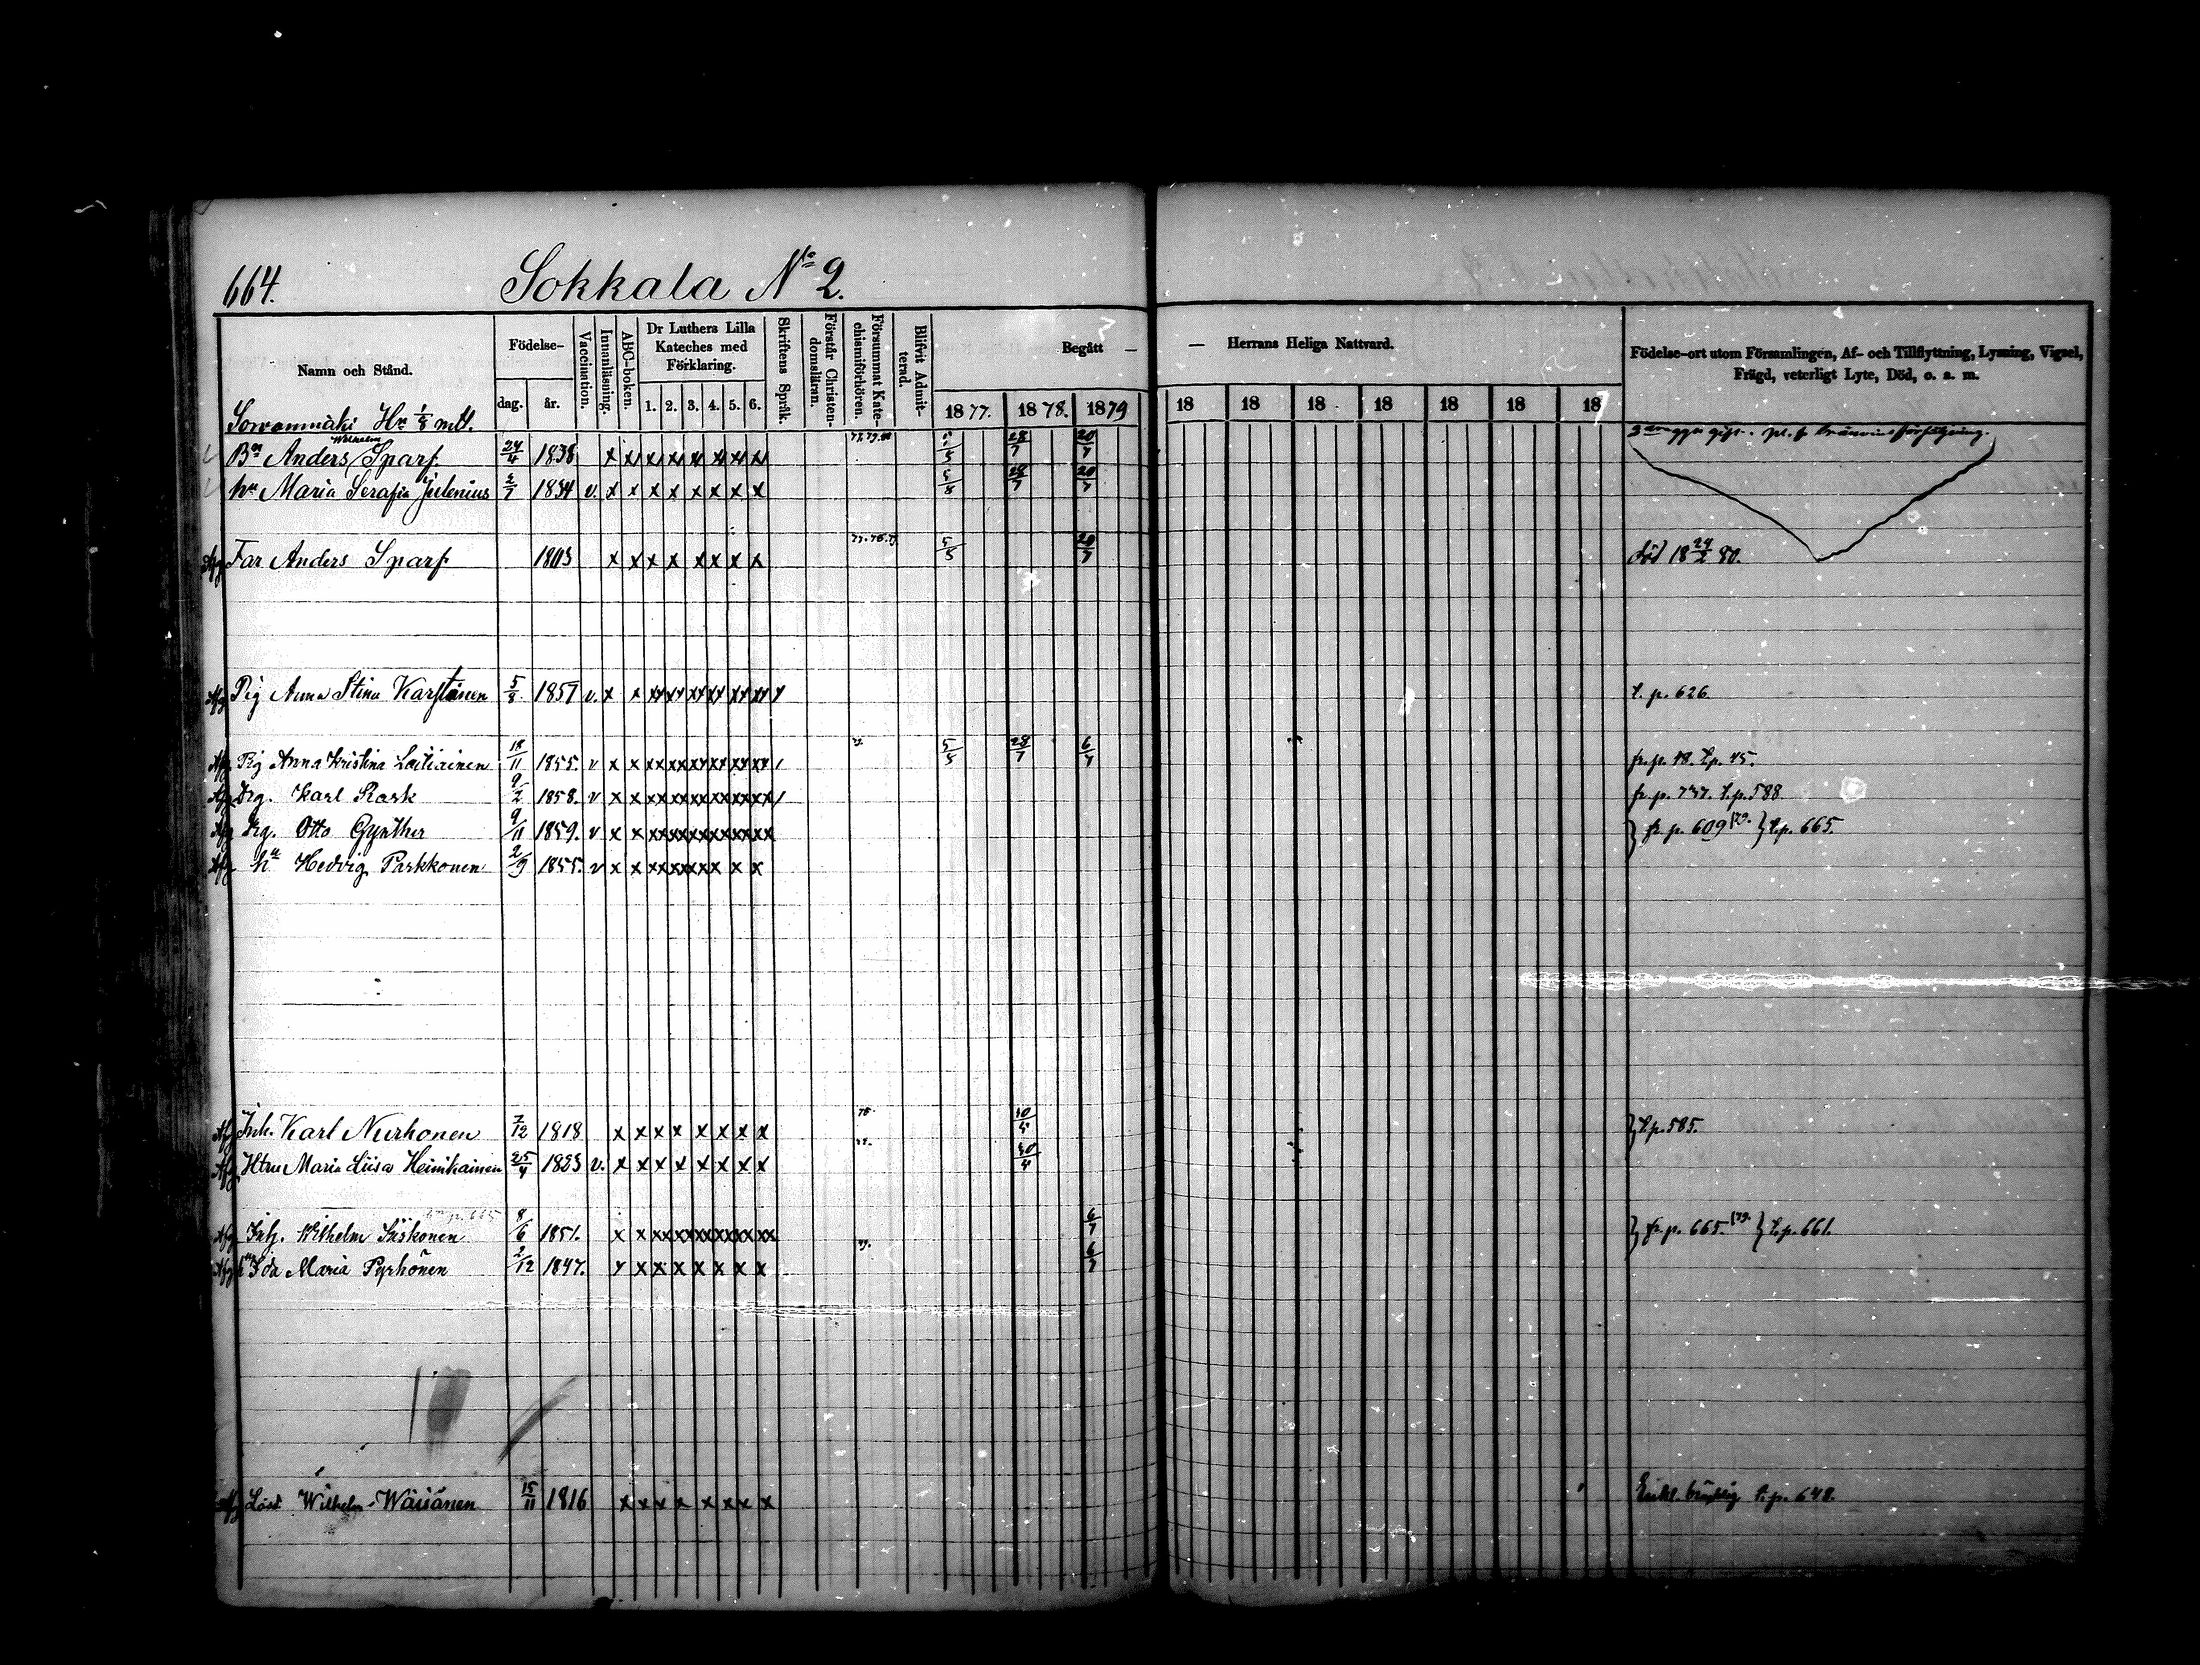 664. Sokkala No 2.
Namn och Stånd.
Födelse-
dag. år.
Vaccination.
Innanläsning.
ABC-boken.
Dr Luthers Lilla Kateches med Förklaring.
1. 2. 3. 4. 5. 6.
Skriftens Språk.
Förstår Christendomsläran.
Försummat Katechismiförhören.
Blifvit Admitterad.
Begått — — Herrans Heliga Nattvard.
1877. 1878. 1879 18 18 18 18 18 18 18
Födelse-ort utom Församlingen, Af- och Tillflyttning, Lysning, Vigsel, Frägd, veterligt Lyte, Död, o. a. m.
Hn 1/8 mtl.
Bn Anders Wilhelm Sparf 24/4 1838 x x x x x x x x 28/7 20/7
hu Maria Serafia Julenius 2/7 1834 v. x x x x x x x x 28/7 20/7
Afg Far Anders Sparf 1803 x x x x x x x x 5/5 20/7 död 18 24/2 80.
Afg Pig Anna Stina Karstinen 5/8 1857 v. x x t. p. 626.
Afg Pig Anna Kristina Laitiainen 18/11 1855. v x x 5/5 28/7 6/7 fr. p. 48. t.p. 45.
Afg Drg. Karl Rask 9/2 1858. v x x fr. p. 737. t.p. 588
Afg Drg. Otto Gynther 9/11 1859. v x x } fr. p. 609 /79. } t.p. 665.
Afg hu Hedvig Parkkonen 2/9 1855. v x x
Afg Inh. Karl Nurhonen 7/12 1818 x x x x x x x x 78. 10/4 } t.p. 585.
Afg Htru Maria Liisa Heinikainen 25/4 1823 v. x x x x x x x x 10/4
Afg Inh. Wilhelm Siiskonen 8/6 1851. x x 6/7 } fr. p. 665. /79. } t.p. 661.
Afg hu Ida Maria Pyrhönen 2/12 1847. x x x x x x x x 79. 6/7
Afg Löst Wilhelm Wäisänen 15/11 1816 x x x x x x x x t.p. 648.